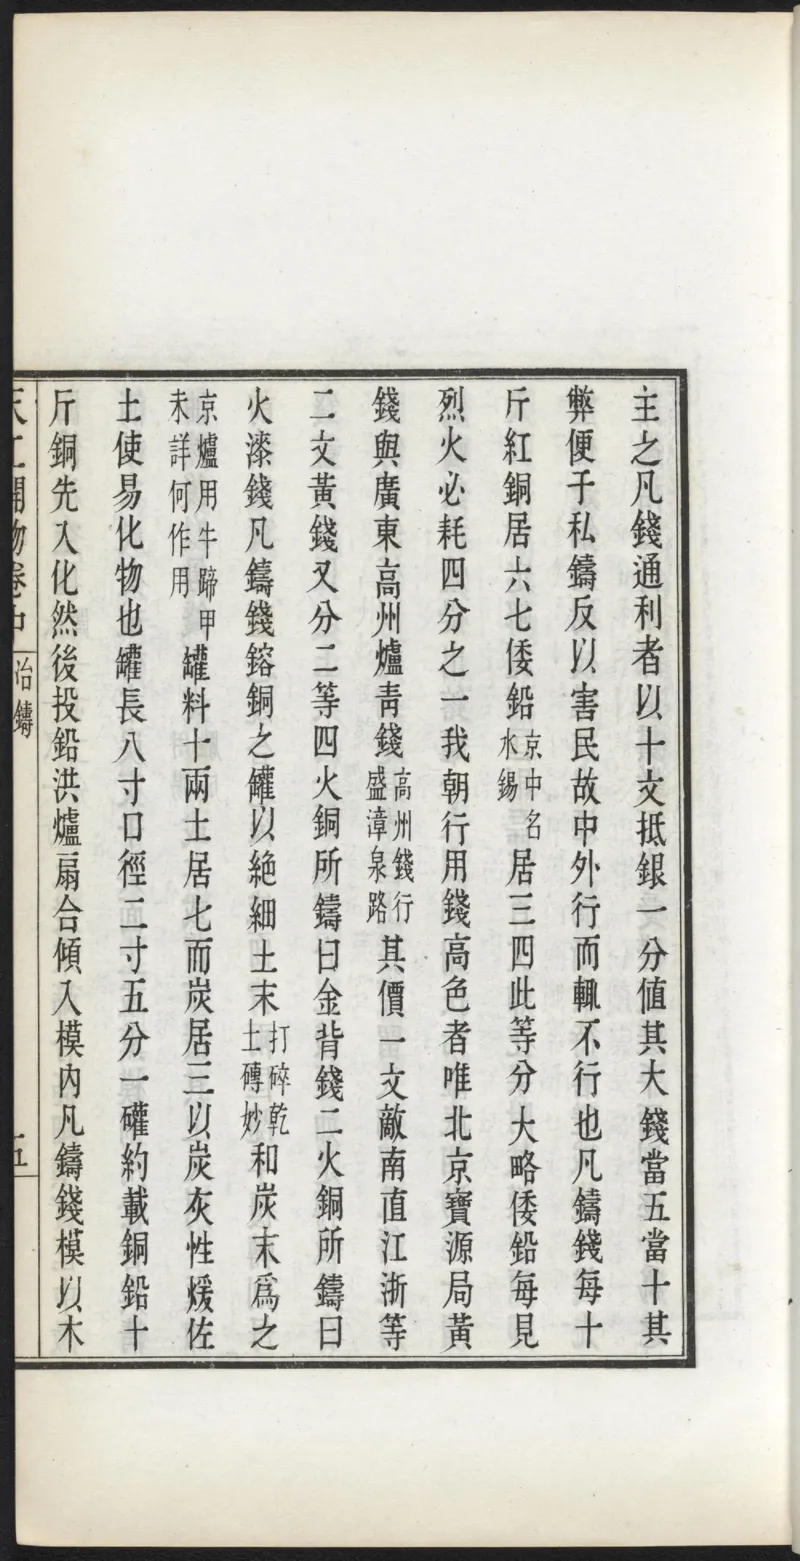 主之凡錢通利者以十文抵銀一分值其大錢當五當十其
弊便于私鑄反以害民故中外行而輒不行也凡鑄錢每十
斤紅銅居六七倭鉛京中名水錫居三四此等分大略倭鉛每見
烈火必耗四分之一我朝行用錢高色者唯北京寶源局黃
錢與廣東高州爐青錢高州錢行盛漳泉路其價一文敵南直江浙等
二文黃錢又分二等四火銅所鑄曰金背錢二火銅所鑄曰
火漆錢凡鑄錢鎔銅之罐以絕細土末打碎乾土磚妙和炭末爲之
京爐用牛蹄甲未詳何作用罐料十兩土居七而炭居三以炭灰性煖佐
土使易化物也罐長八寸口徑二寸五分一礶約載銅鉛十
斤銅先入化然後投鉛洪爐扇合傾入模內凡鑄錢模以木
天工開物卷中 冶鑄 五